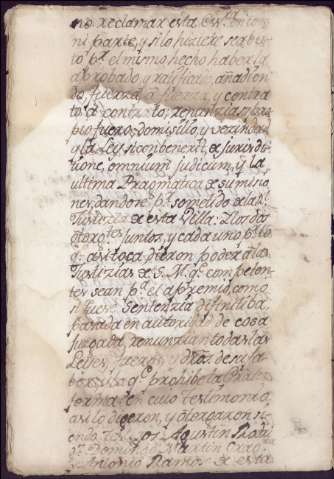 no reclamar esta es.ra en todo
ni parte, y si lo hiziere sea visto
p.r el mismo hecho haberla
aprobado y ratificado, añadien
do fuerza a fuerza y contra
to a contrato, renunzian su pro
pio fuero, domisilio, y vezindad
y la Ley sit combenerit de jurisdi
tione, omnium judicum, y la
ultima Pragmatica de sumisio
nes, dandose p.r sometido a las
Justicias de esta Villa: Y los dos
otorg.tes juntos, y cada uno p.r lo
q.e asi toca dieron poder a las
Justizias de S. M. q.e competen
tes sean p.a el apremio, como
si fuese Sentenzia difinitiba
pasada en autoridad de cosa
juzgada, renunzian todas las
Leyes, fueros, y dros. de su fa
bor y la q.e prohibe la Gral
forma: en cuio testimonio
asi lo digeron, y otorgaron si
endo t.gos Agustin Rodri
g.z Domingo Martin
y Antonio Ramos de esta